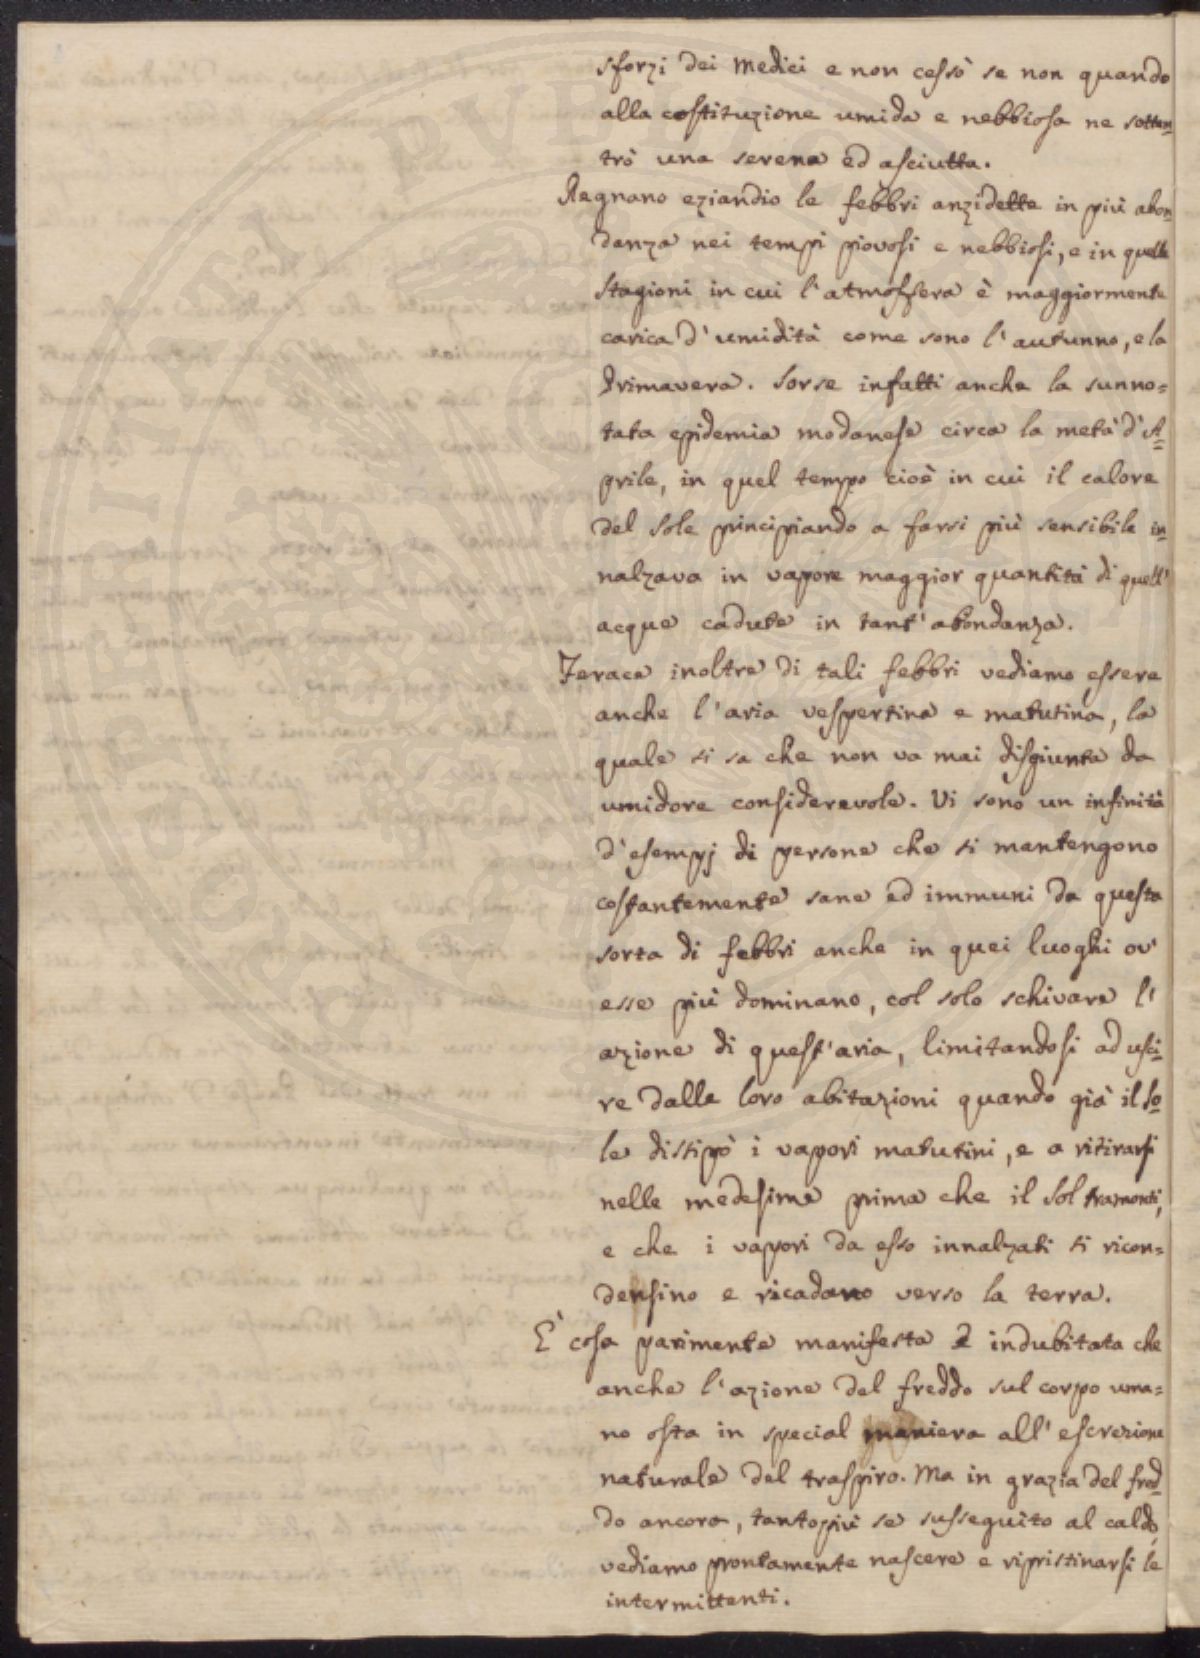 sforzi dei Medici e non cessò se non quando
alla costituzione umida e nebbiosa ne sotten-
trò una serena ed asciutta.
Regnano eziandio le febbri anzidette in più abon-
danza nei tempi piovosi e nebbiosi, e in quelle
stagioni in cui l'atmosfera è maggiormente
carica d'umidità come sono l'autunno, e la
Primavera. Sorse infatti anche la sunno=
tata epidemia modanese circa la metà d'A=
prile, in quel tempo cioè in cui il calore
del Sole principiando a farsi più sensibile in-
nalzava in vapore maggior quantità di quell'
acque cadute in tant'abondanza.
Feraca inoltre di tali febbri vediamo essere
anche l'aria vespertina e matutina, la
quale si sa che non va mai disgiunta da
umidore considerevole. Vi sono un infinità
d'esempj di persone che si mantengono
costantemente sane ed immuni da questa
sorta di febbri anche in quei luoghi ov'
esse più dominano, col solo schivare l'
azione di quest'aria, limitandosi ad usci-
re dalle loro abitazioni quando già il So-
le dissipò i vapori matutini, e a ritirarsi
nelle medesime prima che il Sol tramonti,
e che i vapori da esso innalzati si ricon=
densino e ricadano verso la terra.
E' cosa parimente manifesta e indubitata che
anche l'azione del freddo sul corpo uma=
no osta in special maniera all'escrezione
naturale del traspiro. Ma in grazia del fred-
do ancora, tantopiù se susseguito al caldo,
vediamo prontamente nascere e ripristinarsi le
intermittenti.